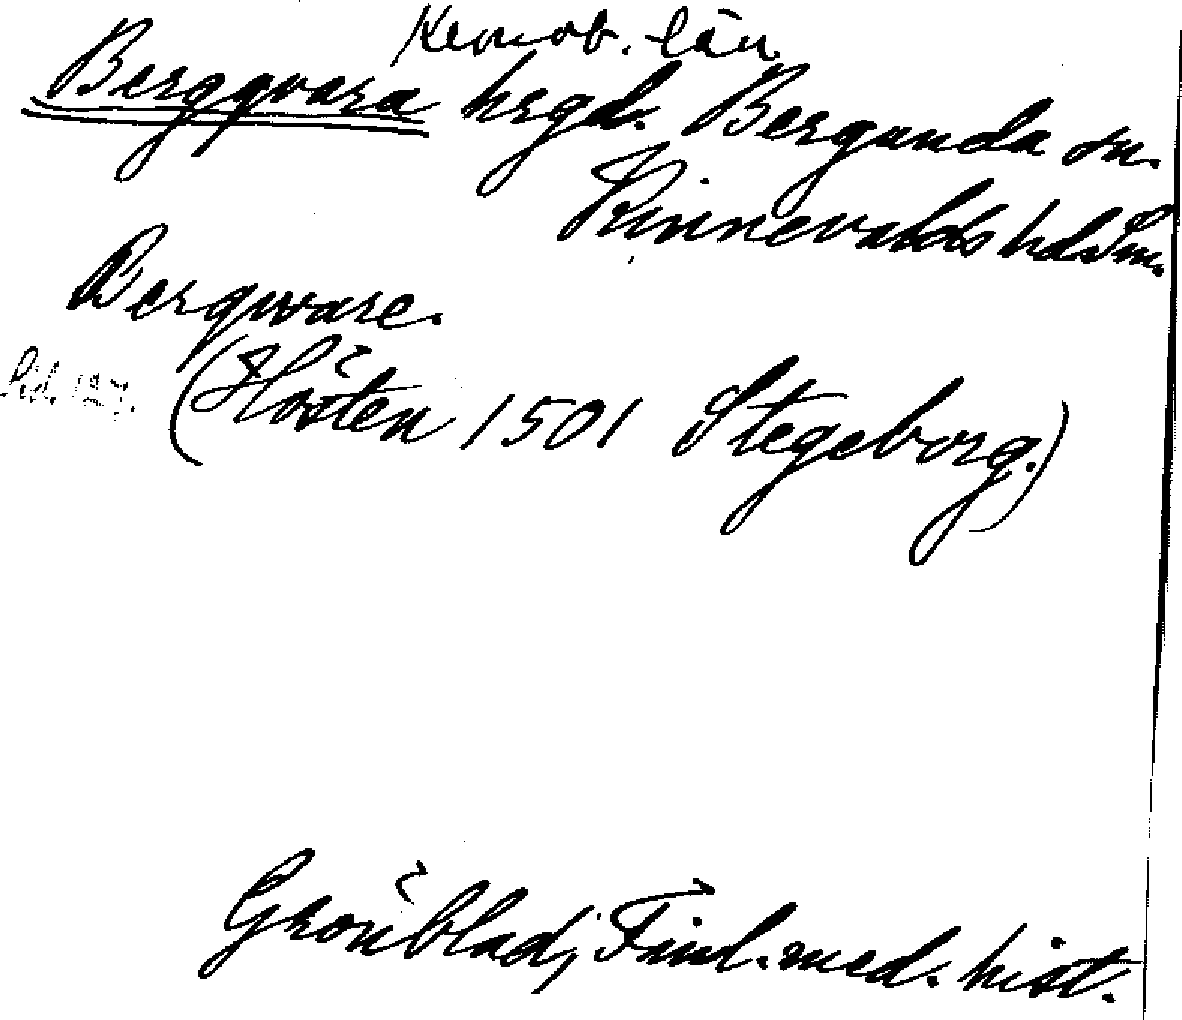 Kronob. län
Bergqvara hrgd. Bergunda sn.
Kinnevalds hd. Sm.
Bergware.
Sid. 127. (Hösten 1501 Stegeborg.)
Grönblad, Finl. med. hist.